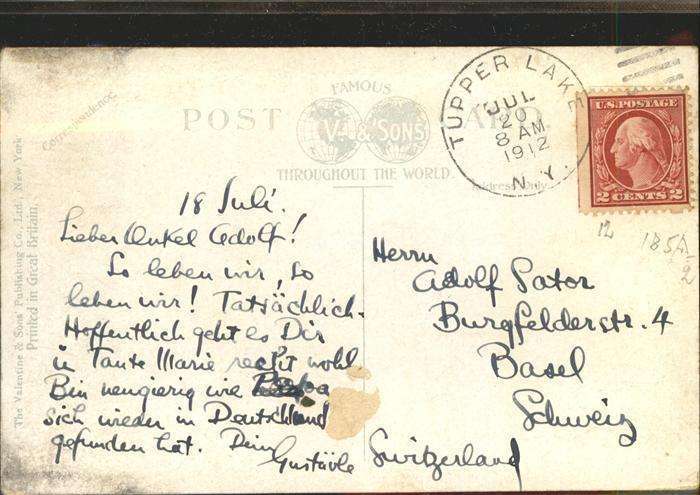 The Valentine & Sons' Publishing Co., Ltd., New York
Printed in Great Britain.
Correspondence.
FAMOUS
POST CARD.
V. & SONS
THROUGHOUT THE WORLD.
Address Only
TUPPER LAKE
JUL
20
8 AM
1912
N. Y.
U.S. POSTAGE
2 CENTS 2
12
185A
2
18 Juli.
Lieber Onkel Adolf!
So leben wir, so
leben wir! Tatsächlich.
Hoffentlich geht es Dir
u Tante Marie recht wohl
Bin neugierig wie
sich wieder in Deutschland
gefunden hat. Dein
Gustävle
Herrn
Adolf Sator
Burgfelderstr. 4
Basel
Schweiz
Switzerland